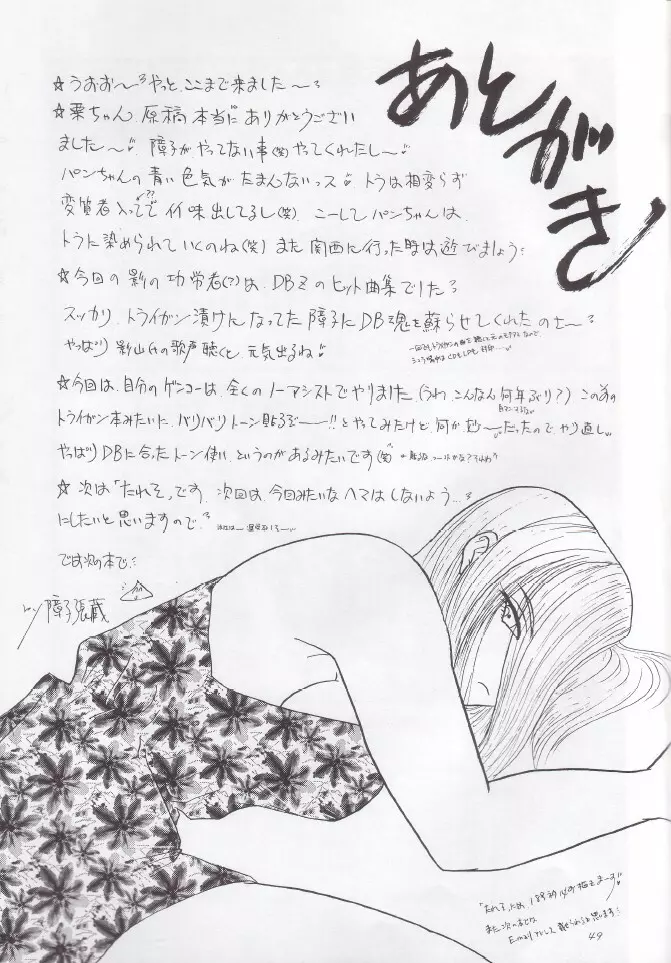 あとがき
☆うおお〜っやっと、ここまで来ました〜っ
☆栗ちゃん、原稿本当にありがとうござい
ました〜 障子がやってない事(笑)やってくれたし〜
パンちゃんの青い色気がたまんないっス トラは相変らず
変質者入ってでイイ味出してるし(笑) こーしてパンちゃんは、
トラに染められていくのね(笑) また関西に行った時は遊びましょう
☆今回の影の功労者(?)は、DBZのヒット曲集でした
スッカリ、トライガン漬けになってた障子にDB魂を蘇らせてくれたのさ〜
やっぱり影山氏の歌声聴くと、元気出るね
☆今回は、自分のゲンコーは、全くのノーアシストでやりました(うわ、こんなん何年ぶり?)この前の
トライガン本みたいに、バリバリトーン貼るぞーーー!!とやってみたけど、何か妙〜だったので、やり直し
やっぱりDBに合ったトーン使い、というのがあるみたいです(笑)
☆次は「たれぞ」です。次回は、今回みたいなヘマはしないよう…
にしたいと思いますので
では次の本で
障子張蔵
また次の本で
49